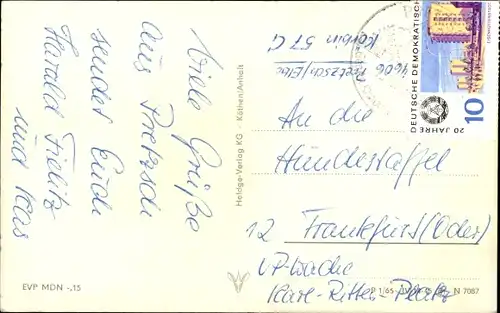 Viele Grüße
aus Pretzsch
sendet Euch
Harald Fielitz
und Klas
EVP MDN -,15
Heldge-Verlag KG Köthen/Anhalt
4606 Pretzsch/Elbe
Korbin 57 G
An die
Hundestaffel
12 Frankfurt (Oder)
VP-Wache
Karl-Ritter-Platz
P 1/65 N 7087
20 JAHRE
DEUTSCHE DEMOKRATISCH
10